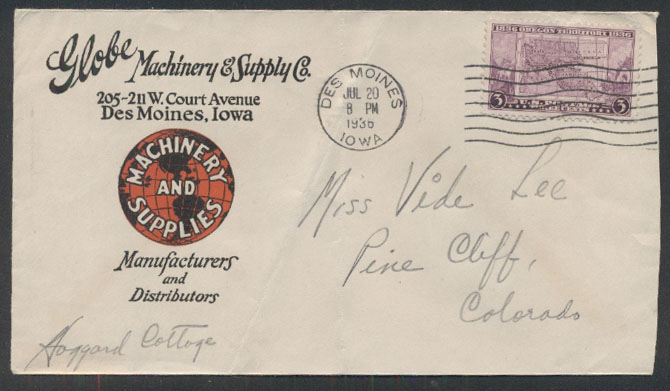 Globe Machinery & Supply Co.
205-211 W. Court Avenue
Des Moines, Iowa
MACHINERY
AND
SUPPLIES
Manufacturers
and
Distributors
DES MOINES
JUL 20
8 PM
1936
IOWA
1836 OREGON TERRITORY 1936
3 3
Miss Vide Lee
Pine Cliff,
Colorado
Haggard Cottage